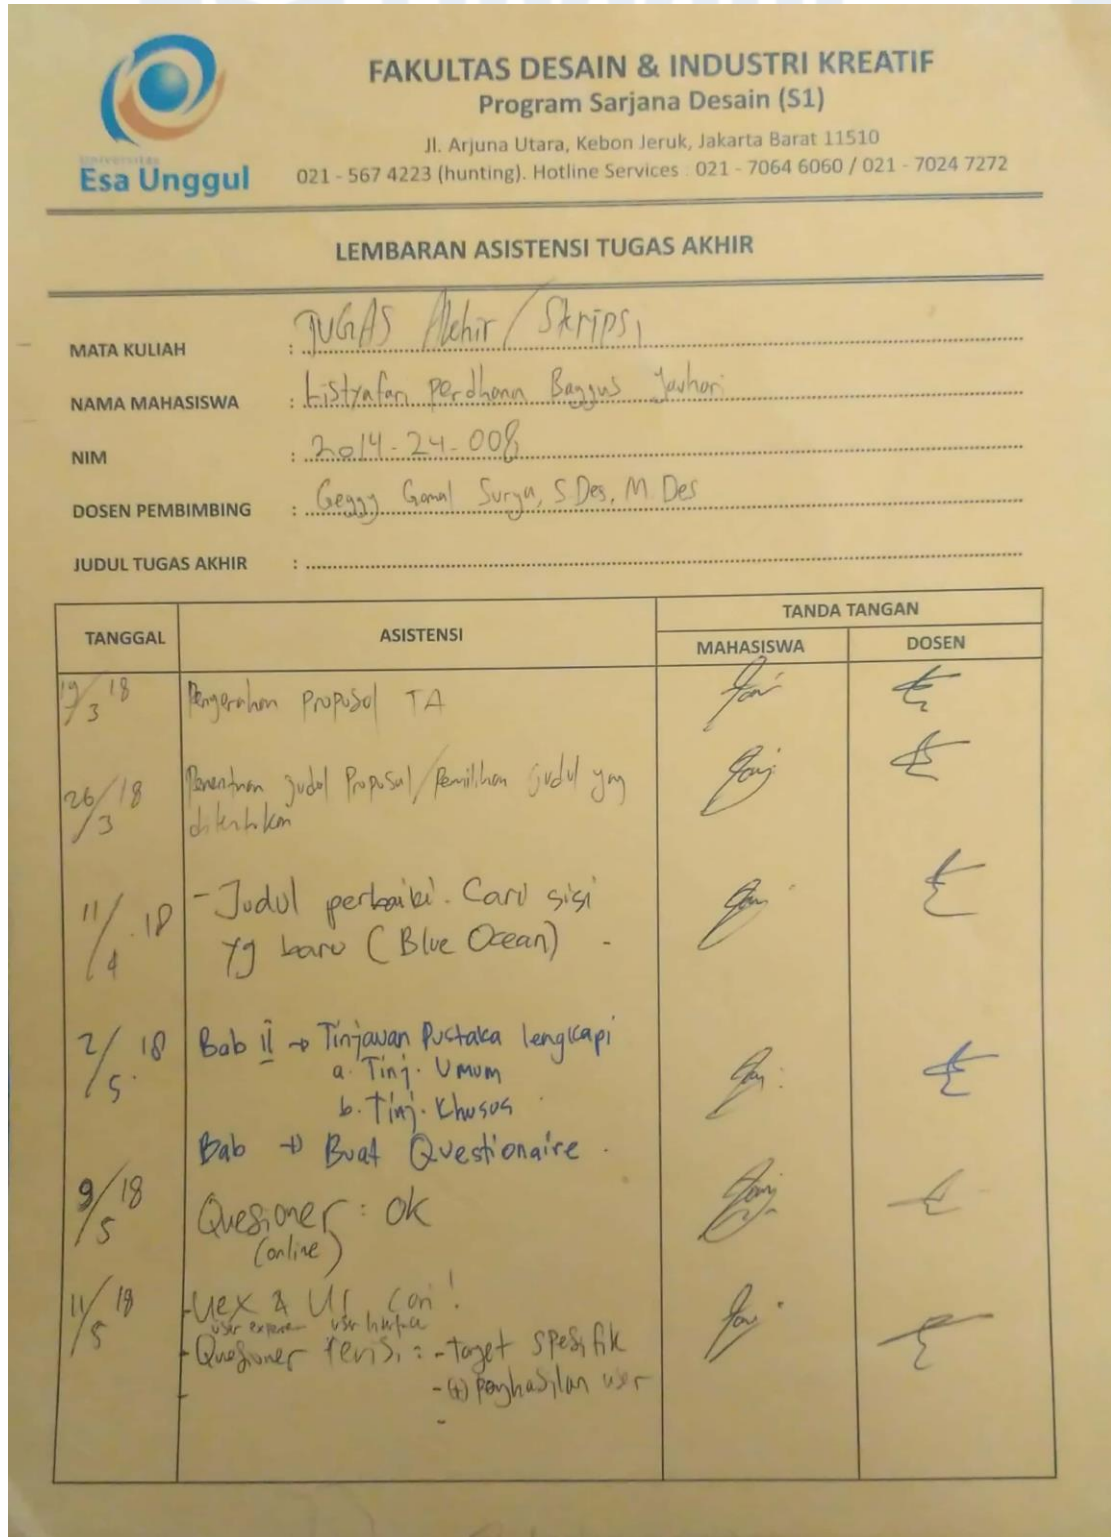 UNIVERSITAS
Esa Unggul
FAKULTAS DESAIN & INDUSTRI KREATIF
Program Sarjana Desain (S1)
Jl. Arjuna Utara, Kebon Jeruk, Jakarta Barat 11510
021 - 567 4223 (hunting). Hotline Services : 021 - 7064 6060 / 021 - 7024 7272
LEMBARAN ASISTENSI TUGAS AKHIR
MATA KULIAH : TUGAS Akhir / Skripsi
NAMA MAHASISWA : Listyafan Perdhana Baggus Jauhari
NIM : 2014-24-008
DOSEN PEMBIMBING : Geggy Gamal Surya, S.Des, M.Des
JUDUL TUGAS AKHIR :
TANGGAL ASISTENSI TANDA TANGAN
MAHASISWA DOSEN
19/3 18 Pengerahan Proposal TA
26/3 18 Penentuan judul Proposal/Pemilihan judul yng
ditentukan
11/4 . 18 - Judul perbaiki. Cari sisi
yg baru (Blue Ocean) -
2/5 . 18 Bab II → Tinjauan Pustaka lengkapi
a. Tinj. Umum
b. Tinj. Khusus
Bab → Buat Questionaire .
9/5 18 Quesioner : OK
(online)
11/5 18 - Uex & UI cari !
user interface
- Quesioner revisi : - target spesifik
- (+) penghasilan user
-